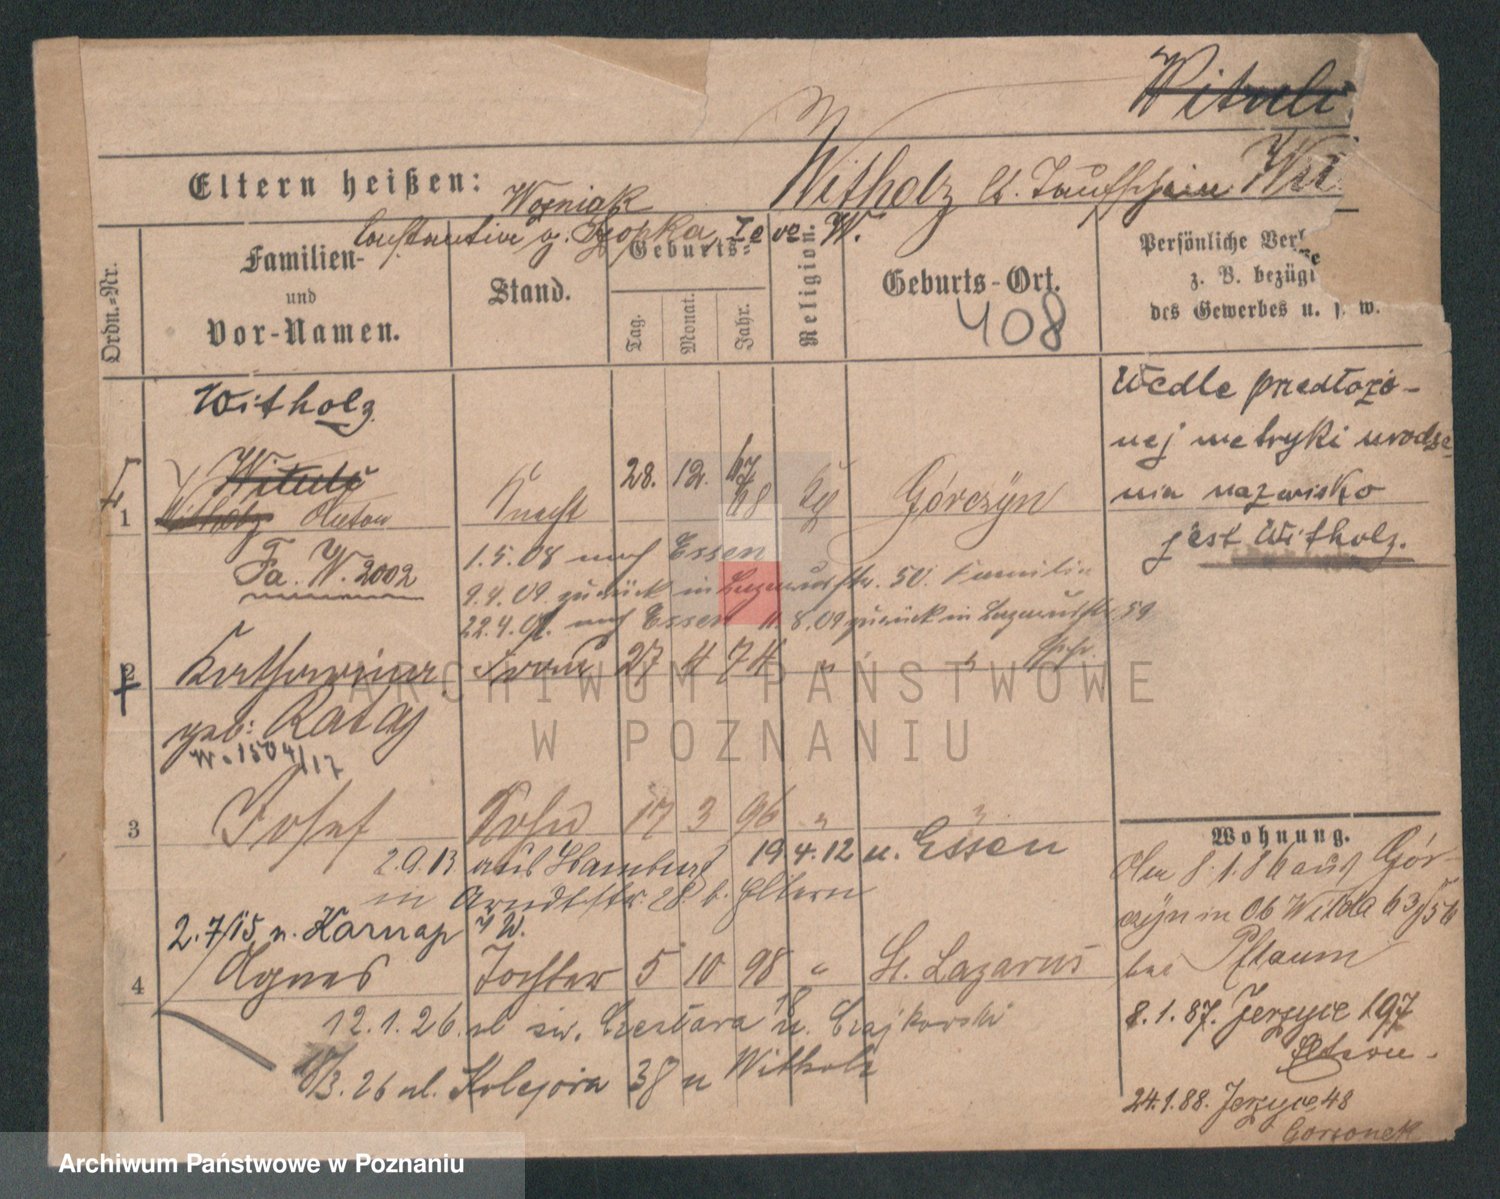 Wituli
Eltern heißen:
Woźniak
Witholz lt. Taufschein Wit
Constantin u.
Ordn.-Nr.
Familien-
und
Vor-Namen.
Stand.
Geburts-
Tag.
Monat.
Jahr.
Religion.
Geburts-Ort.
408
Persönliche Ver
z. B. bezügl
des Gewerbes u. s. w.
Witholz
Wedle przedłożo-
nej metryki urodze-
nia nazwisko
jest Witholz.
1
Wituli
Witholz Anton Knecht 28. 12. 67 68 Górczyn
Fa. W. 2002
1.5.08 nach Essen
9.4.09. zurück in Lazarusstr. 50. Familie
22.4.09. nach Essen 11.8.09 zurück in Lazarusstr. 59
2
Katharina Frau 27 4 74 "
geb. Rataj
W. 1504/17
3
Josef Sohn 17 3 96 "
2.9.13 aus Hamburg 19.4.12 n. Essen
in Arndtstr. 28 b. Eltern
2.7/15 n. Karnap
4
Agnes Tochter 5 10 98 " St. Lazarus
12.1.26 ul św. Czesława 18 u. Czajkowski
/3.26 ul. Kolejowa 38 u Witholz
Wohnung.
8.1.86 aus Gór-
czyn in Ob Wilda 63/56
bei Pflaum
8.1.87. Jerzyce 197
24.1.88. Jerzyce 48
ARCHIWUM PAŃSTWOWE
W POZNANIU
Archiwum Państwowe w Poznaniu